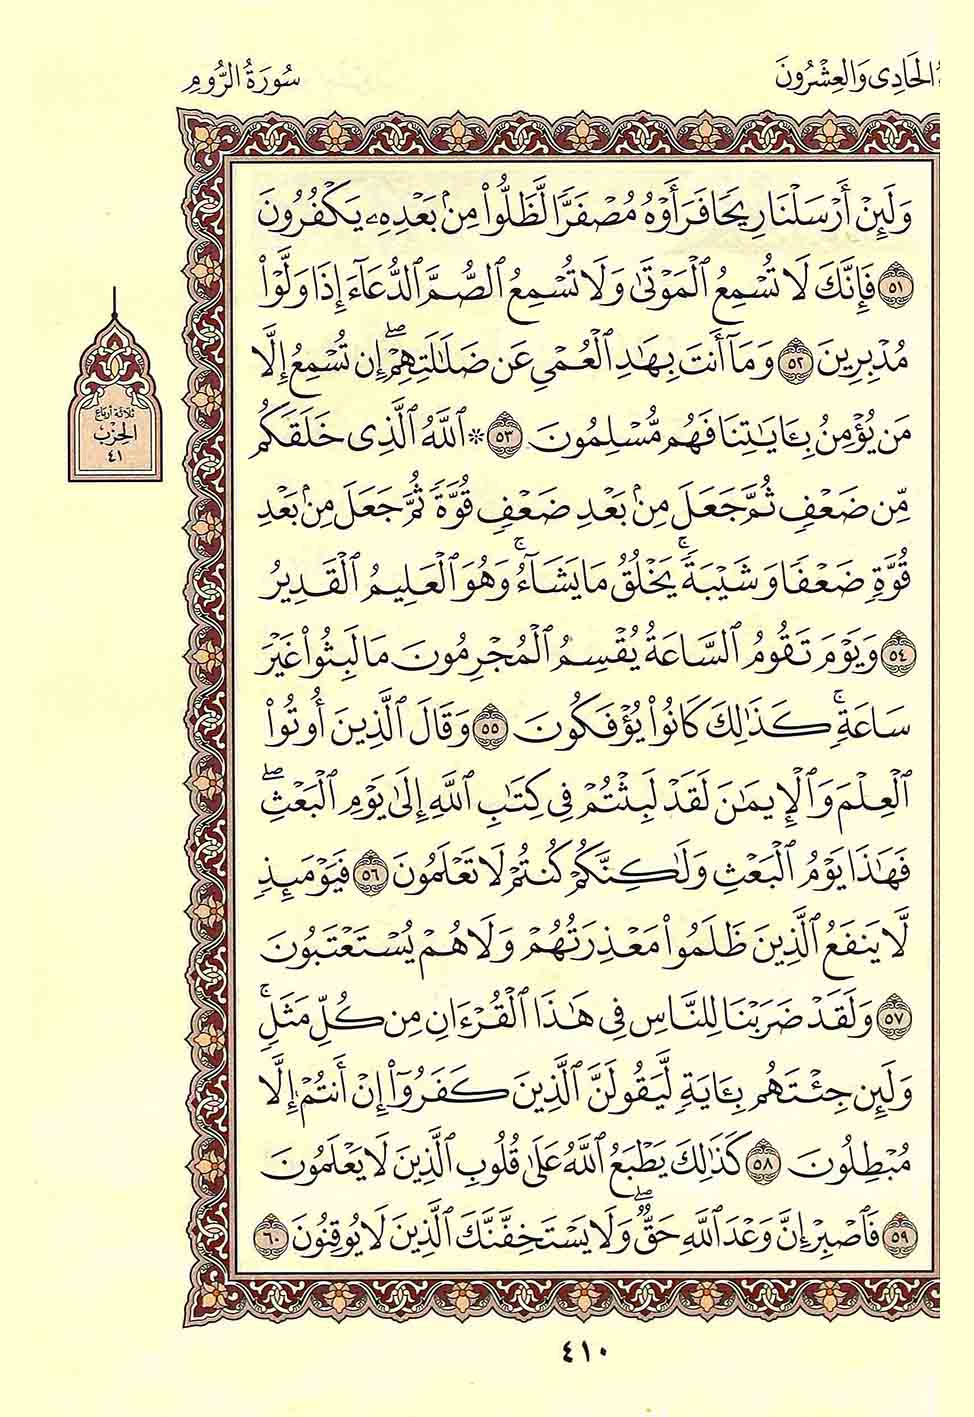 ءُ الحَادِي وَالعِشْرُونَ
سُورَةُ الرُّومِ
وَلَئِنْ أَرْسَلْنَا رِيحًا فَرَأَوْهُ مُصْفَرًّا لَّظَلُّواْ مِنۢ بَعْدِهِۦ يَكْفُرُونَ
٥١ فَإِنَّكَ لَا تُسْمِعُ ٱلْمَوْتَىٰ وَلَا تُسْمِعُ ٱلصُّمَّ ٱلدُّعَآءَ إِذَا وَلَّوْاْ
مُدْبِرِينَ ٥٢ وَمَآ أَنتَ بِهَٰدِ ٱلْعُمْيِ عَن ضَلَٰلَتِهِمْۖ إِن تُسْمِعُ إِلَّا
مَن يُؤْمِنُ بِـَٔايَٰتِنَا فَهُم مُّسْلِمُونَ ٥٣ ۞ ٱللَّهُ ٱلَّذِى خَلَقَكُم
مِّن ضَعْفٍ ثُمَّ جَعَلَ مِنۢ بَعْدِ ضَعْفٍ قُوَّةً ثُمَّ جَعَلَ مِنۢ بَعْدِ
قُوَّةٍ ضَعْفًا وَشَيْبَةًۚ يَخْلُقُ مَا يَشَآءُۚ وَهُوَ ٱلْعَلِيمُ ٱلْقَدِيرُ
٥٤ وَيَوْمَ تَقُومُ ٱلسَّاعَةُ يُقْسِمُ ٱلْمُجْرِمُونَ مَا لَبِثُواْ غَيْرَ
سَاعَةٍۚ كَذَٰلِكَ كَانُواْ يُؤْفَكُونَ ٥٥ وَقَالَ ٱلَّذِينَ أُوتُواْ
ٱلْعِلْمَ وَٱلْإِيمَٰنَ لَقَدْ لَبِثْتُمْ فِى كِتَٰبِ ٱللَّهِ إِلَىٰ يَوْمِ ٱلْبَعْثِۖ
فَهَٰذَا يَوْمُ ٱلْبَعْثِ وَلَٰكِنَّكُمْ كُنتُمْ لَا تَعْلَمُونَ ٥٦ فَيَوْمَئِذٍ
لَّا يَنفَعُ ٱلَّذِينَ ظَلَمُواْ مَعْذِرَتُهُمْ وَلَا هُمْ يُسْتَعْتَبُونَ
٥٧ وَلَقَدْ ضَرَبْنَا لِلنَّاسِ فِى هَٰذَا ٱلْقُرْءَانِ مِن كُلِّ مَثَلٍۚ
وَلَئِن جِئْتَهُم بِـَٔايَةٍ لَّيَقُولَنَّ ٱلَّذِينَ كَفَرُوٓاْ إِنْ أَنتُمْ إِلَّا
مُبْطِلُونَ ٥٨ كَذَٰلِكَ يَطْبَعُ ٱللَّهُ عَلَىٰ قُلُوبِ ٱلَّذِينَ لَا يَعْلَمُونَ
٥٩ فَٱصْبِرْ إِنَّ وَعْدَ ٱللَّهِ حَقٌّۖ وَلَا يَسْتَخِفَّنَّكَ ٱلَّذِينَ لَا يُوقِنُونَ ٦٠
ثلاثة أرباع
الحِزْب
٤١
٤١٠